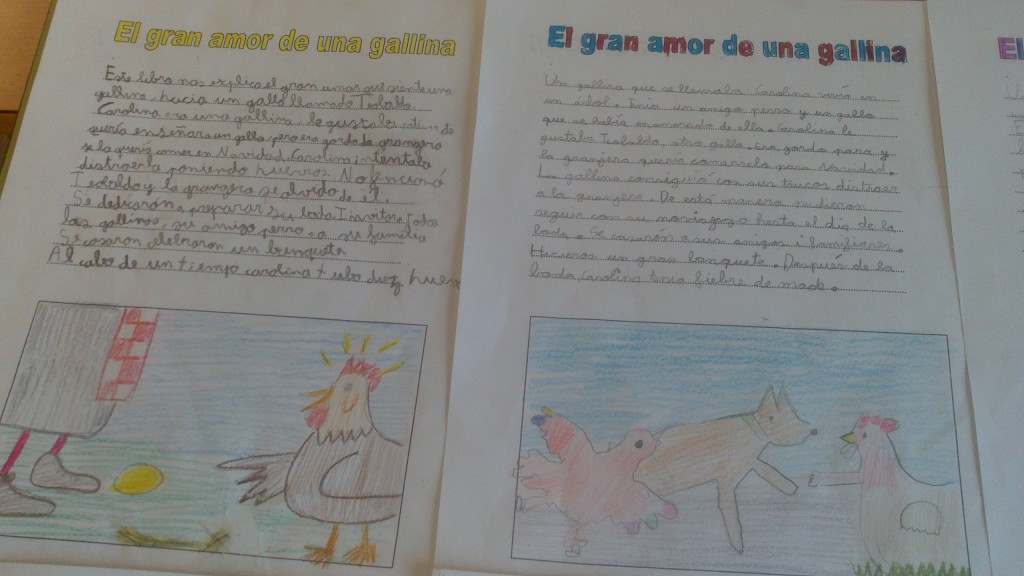 El gran amor de una gallina
Este libro nos explica el gran amor que siente una
gallina, hacia un gallo llamado Teobaldo.
Carolina era una gallina, le gustaba
quería enseñar a un gallo, pero era gorda la grangera
se la quería comer en Navidad. Carolina intentaba
distraerla poniendo huevos. No funcionó
Teobaldo y la grangera se de él.
Se dedicarón a preparar su boda. Invitaron a todas
las gallinas, su amigo perro y a su familia
Se casaron celebraron un banquete
Al cabo de un tiempo carolina tubo diez huevos
El gran amor de una gallina
Una gallina que se llamaba Carolina vivía en
un árbol. Tenía un amigo perro y un gallo
que se había enamorado de ella. Carolina le
gustaba Teobaldo, otro gallo. Era gorda para y
la granjera quería comersela para Navidad.
La gallina consiguió con sus trucos distraer
a la granjera. De esta manera pudieron
seguir con su noviazgo hasta el día de la
boda. Se casarón a sus amigos i familiares.
Hicieron un gran banquete. Después de la
boda Carolina tenía fiebre de
El